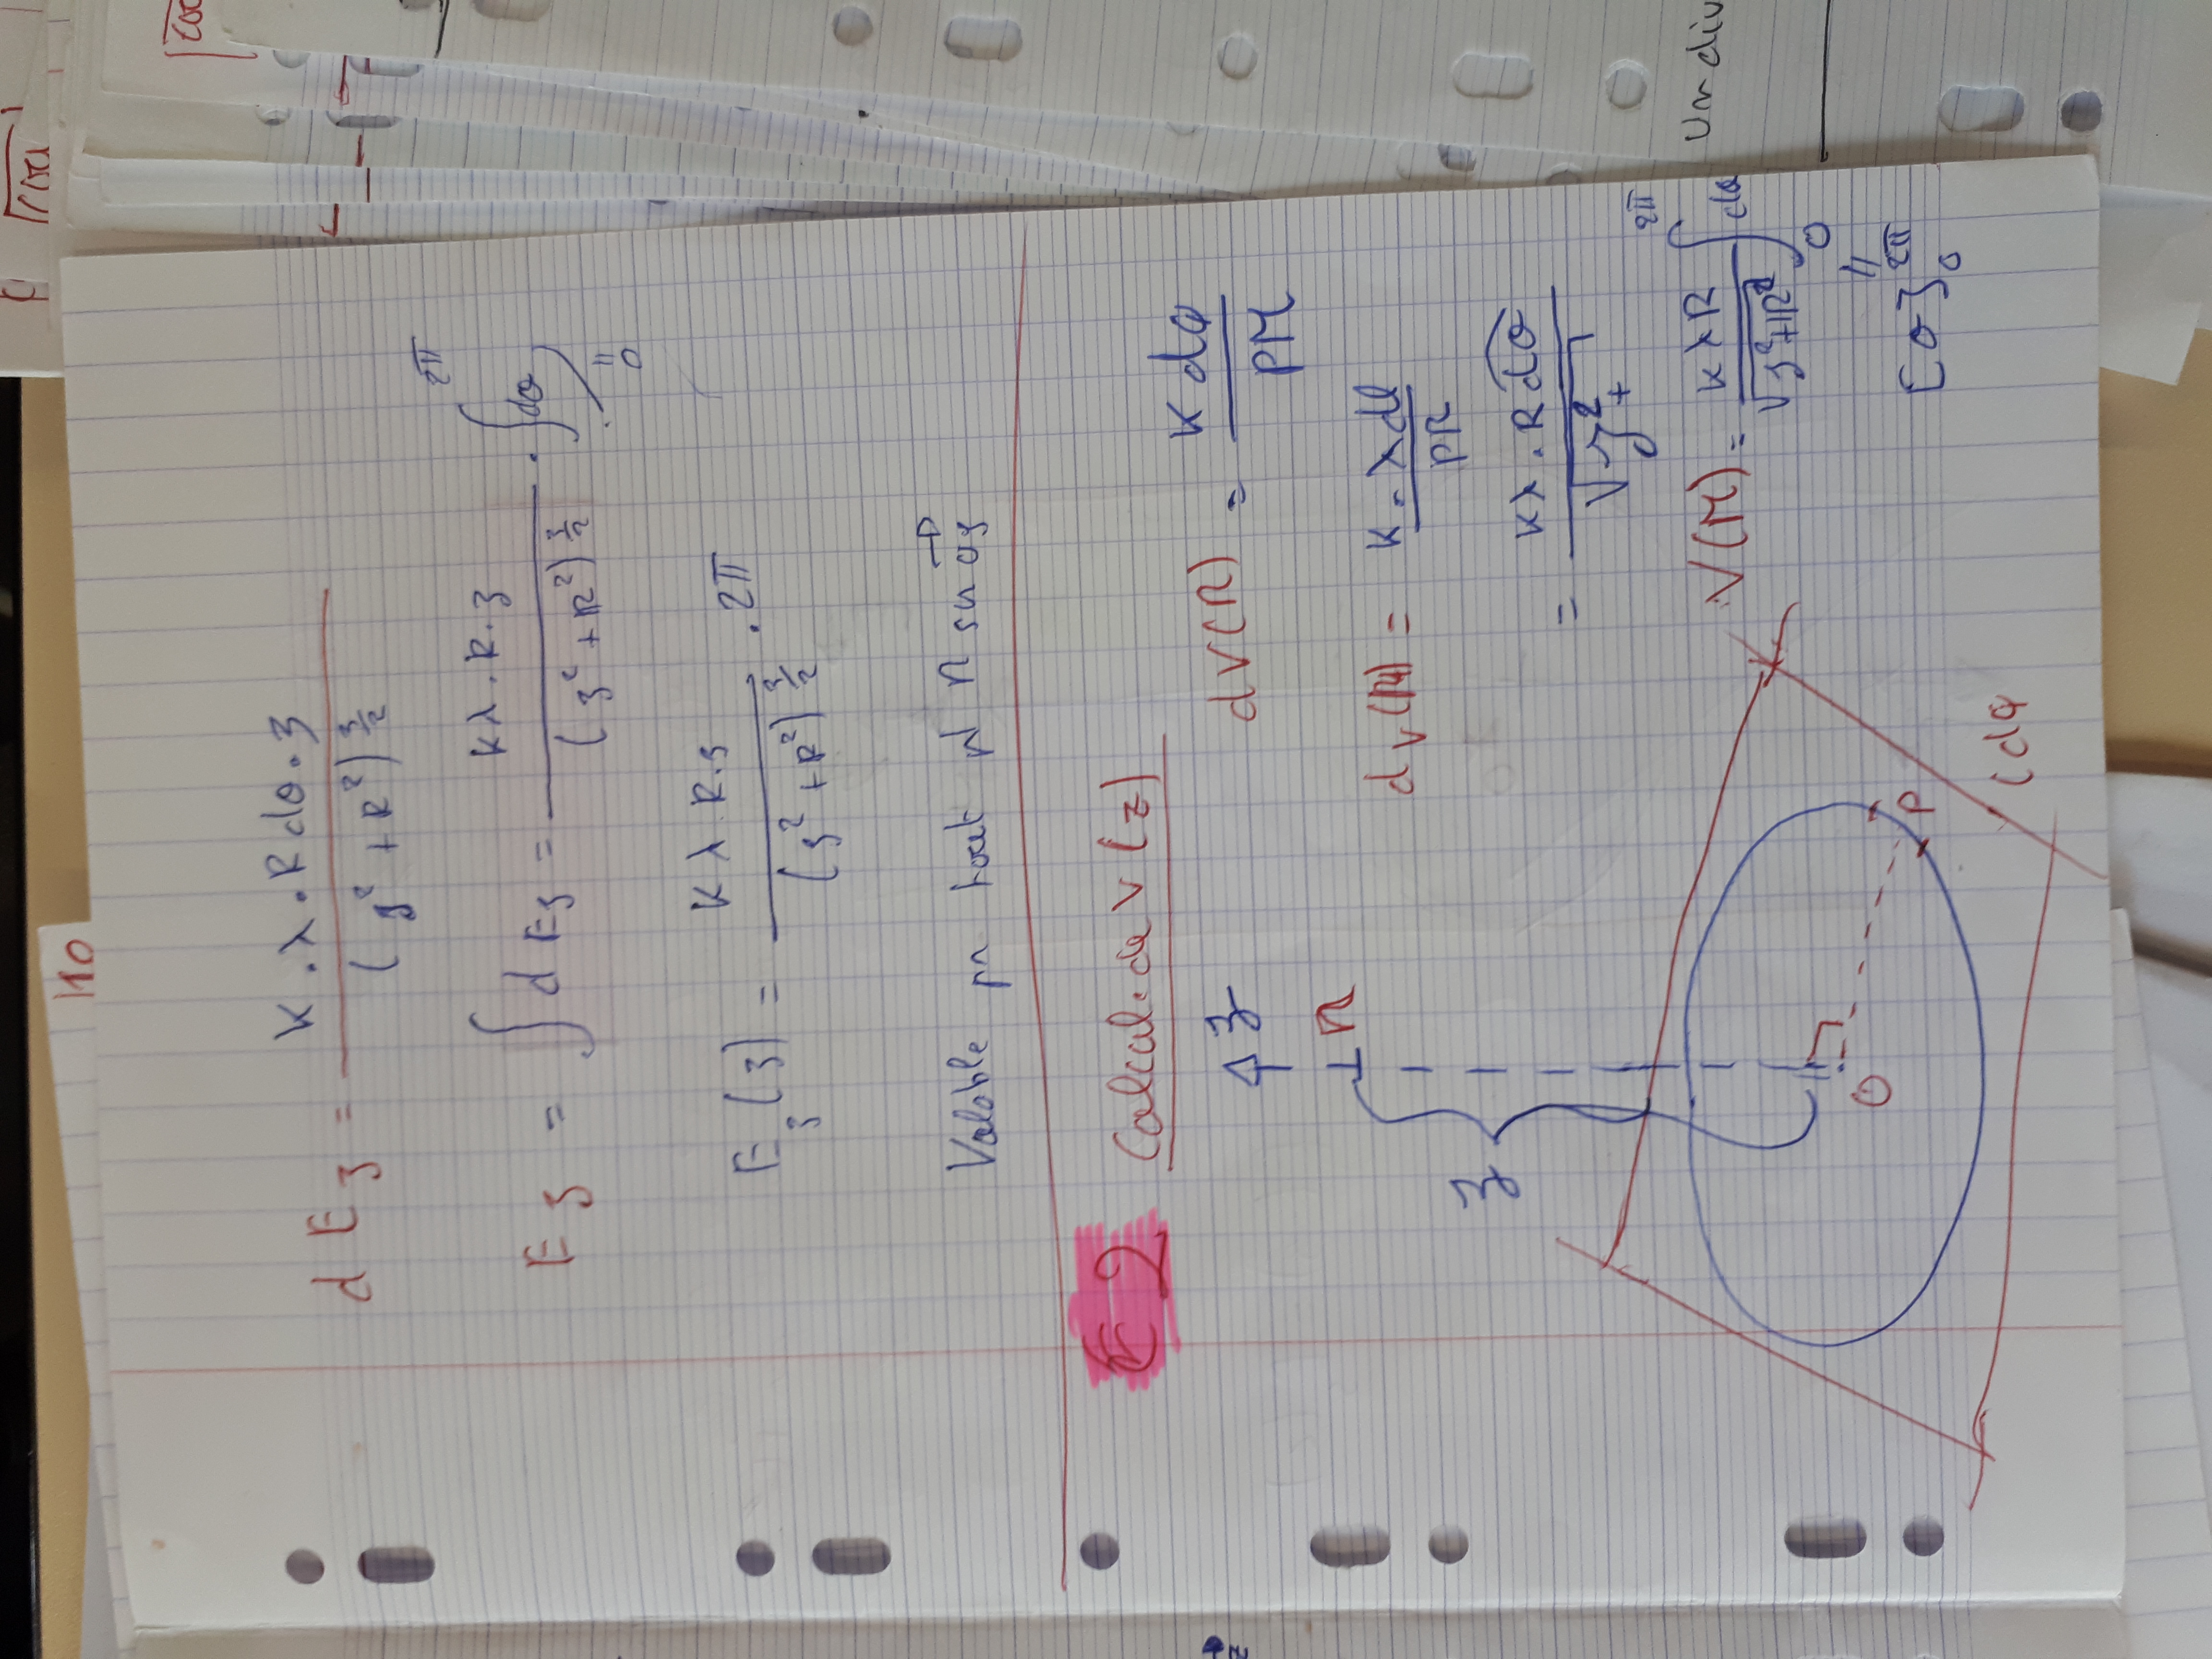 110
dE₃ = K.λ.Rdθ.z / (z² + R²)^3/2
Ez = ∫dEz = Kλ.R.z / (z² + R²)^3/2 . ∫dθ
2π
0
Ez(z) = Kλ R.z / (z² + R²)^3/2 . 2π
Valable pr tout pt M sur Oz
2 Calcul de V(z)
z
M
dV(M) = K dq / PM
dV(M) = K.λdl / PM
z
= Kλ.Rdθ / √z²+
V(M) = KλR / √z²+R² ∫dθ
2π
0
"
[θ]
2π
0
O
P
(dq
Un div